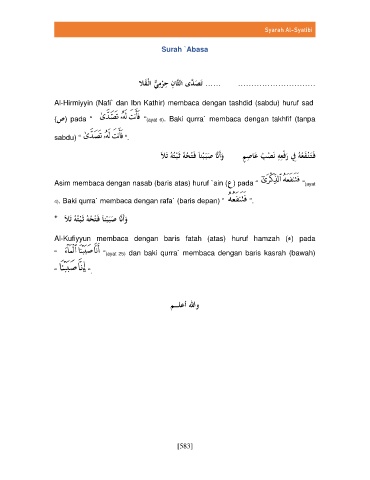 Syarah Al-Syatibi
Surah `Abasa
............................. ...... تَصَدَّى الثَّانِ حِرْمِيٌّ الْقَلاَ
Al-Hirmiyyin (Nafi` dan Ibn Kathir) membaca dengan tashdid (sabdu) huruf sad
(ص) pada " فَأَنتَ لَهُۥ تَصَدَّىٰ "(ayat 6). Baki qurra` membaca dengan takhfif (tanpa
sabdu) " فَأَنتَ لَهُۥ تَصَدَّىٰ ".
فَتَنْفَعُهُ فِي رَفْعِهِ نَصْبُ عَاصِمٍ وَأَنَّا صَبَبْنَا فَتْحُهُ ثَبْتُهُ تَلاَ
Asim membaca dengan nasab (baris atas) huruf `ain (ع) pada " فَتَنفَعَهُ ٱلذِّكْرَىٰٓ "(ayat
4). Baki qurra` membaca dengan rafa` (baris depan) " فَتَنفَعُهُ ".
* وَأَنَّا صَبَبْنَا فَتْحُهُ ثَبْتُهُ تَلاَ
Al-Kufiyyun membaca dengan baris fatah (atas) huruf hamzah (ء) pada
" أَنَّا صَبَبْنَا ٱلْمَآءَ "(ayat 25) dan baki qurra` membaca dengan baris kasrah (bawah)
" إِنَّا صَبَبْنَا ".
والله أعلـــم
[583]